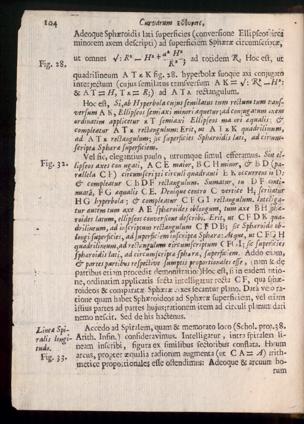 104 Curvarum &c.
Adeoque Sphæroidis lati superficies (conversione Ellipseos circa
minorem axem descripti) ad superficiem Sphæræ circumscriptæ,
ut omnes
ad totidem R. Hoc est, ut
Fig. 28.
quadrilineum A T x K fig. 28. hyperbolæ suoque axi conjugato
interjectum (cujus semilatus transversum A K =
& A T = H, T x = R;) ad A T x rectangulum.
Hoc est, Si, ab Hyperbola cujus semilatus tum rectum tum trans-
versum A K, Ellipseos semiaxi minori æquetur; ad conjugatum axem
ordinatim applicetur x T semiaxi Ellipseos majori æqualis; &
compleatur A T x rectangulum: Erit, ut A T x K quadrilineum,
ad A T x rectangulum; sic superficies Sphæroidis lati, ad circum-
scriptæ Sphæræ superficiem.
Vel sic, elegantius paulo, utrumque simul efferamus. Sint el-
Fig. 32.
lipseos axes non æquales, A C E major, B C H minor, & b D (pa-
rallela C F) circumscripti circuli quadranti E K occurrens in D:
& compleatur C b D F rectangulum. Sumatur, in D F conti-
nuata, F G æqualis C E. Denique centro C vertice H, scribatur
H G hyperbola; & compleatur C F G I rectangulum. Intelliga-
tur autem tum axe A E Sphæroides oblongum, tum axe B H Sphæ-
roides latum, ellipseos conversione describi. Erit, ut C F D K qua-
drilineum, ad inscriptum rectangulum C F D B; sic Sphæroidis ob-
longi superficies, ad superficiem inscriptæ Sphæræ: Atque, ut C F G H
quadrilineum, ad rectangulum circumscriptum C F G I; sic superficies
Sphæroidis lati, ad circumscriptæ Sphæræ, superficiem. Addo etiam,
& partes partibus respective sumptas proportionales esse; (nam & de
partibus etiam procedit demonstratio:) Hoc est, si in eadem ratio-
ne, ordinatim applicatis secta intelligatur recta C F, qua sphæ-
roideos & comparatæ Sphæræ axes secantur plano. Data vero ra-
tione quam habet Sphæroideos ad Sphæræ superficiem, vel etiam
istius partes ad partes hujus; rationem item ad circuli planum dati
nemo nescit. Sed de his hactenus.
Linea Spi-
ralis longi-
tudo.
Accedo ad Spiralem, quam & memorato loco (Schol. prop. 38.
Arith. Infin.) consideravimus. Intelligatur, intra spiralem li-
neam inscribi, figura ex similibus sectoribus constata. Horum
Fig. 33.
arcus, propter æqualia radiorum augmenta (ut C A = A) arith-
metice proportionales esse ostendimus: Adeoque & arcuum ho-
rum